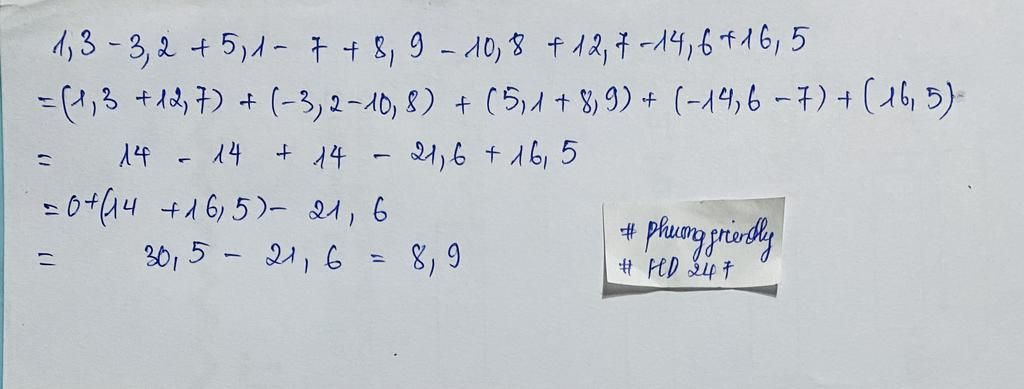 1,3 - 3,2 + 5,1 - 7 + 8,9 - 10,8 + 12,7 - 14,6 + 16,5
= (1,3 + 12,7) + (-3,2 - 10,8) + (5,1 + 8,9) + (-14,6 - 7) + (16,5)
= 14 - 14 + 14 - 21,6 + 16,5
= 0 + (14 + 16,5) - 21,6
= 30,5 - 21,6 = 8,9
# phuongfriendly
# HD 247